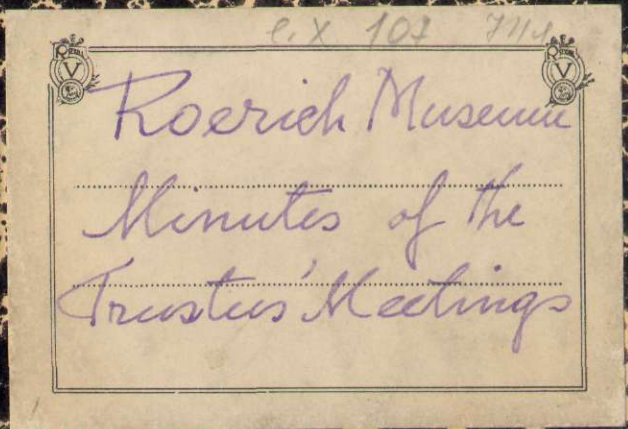 107
Roerich Museum
Minutes of the
Trustees' Meetings